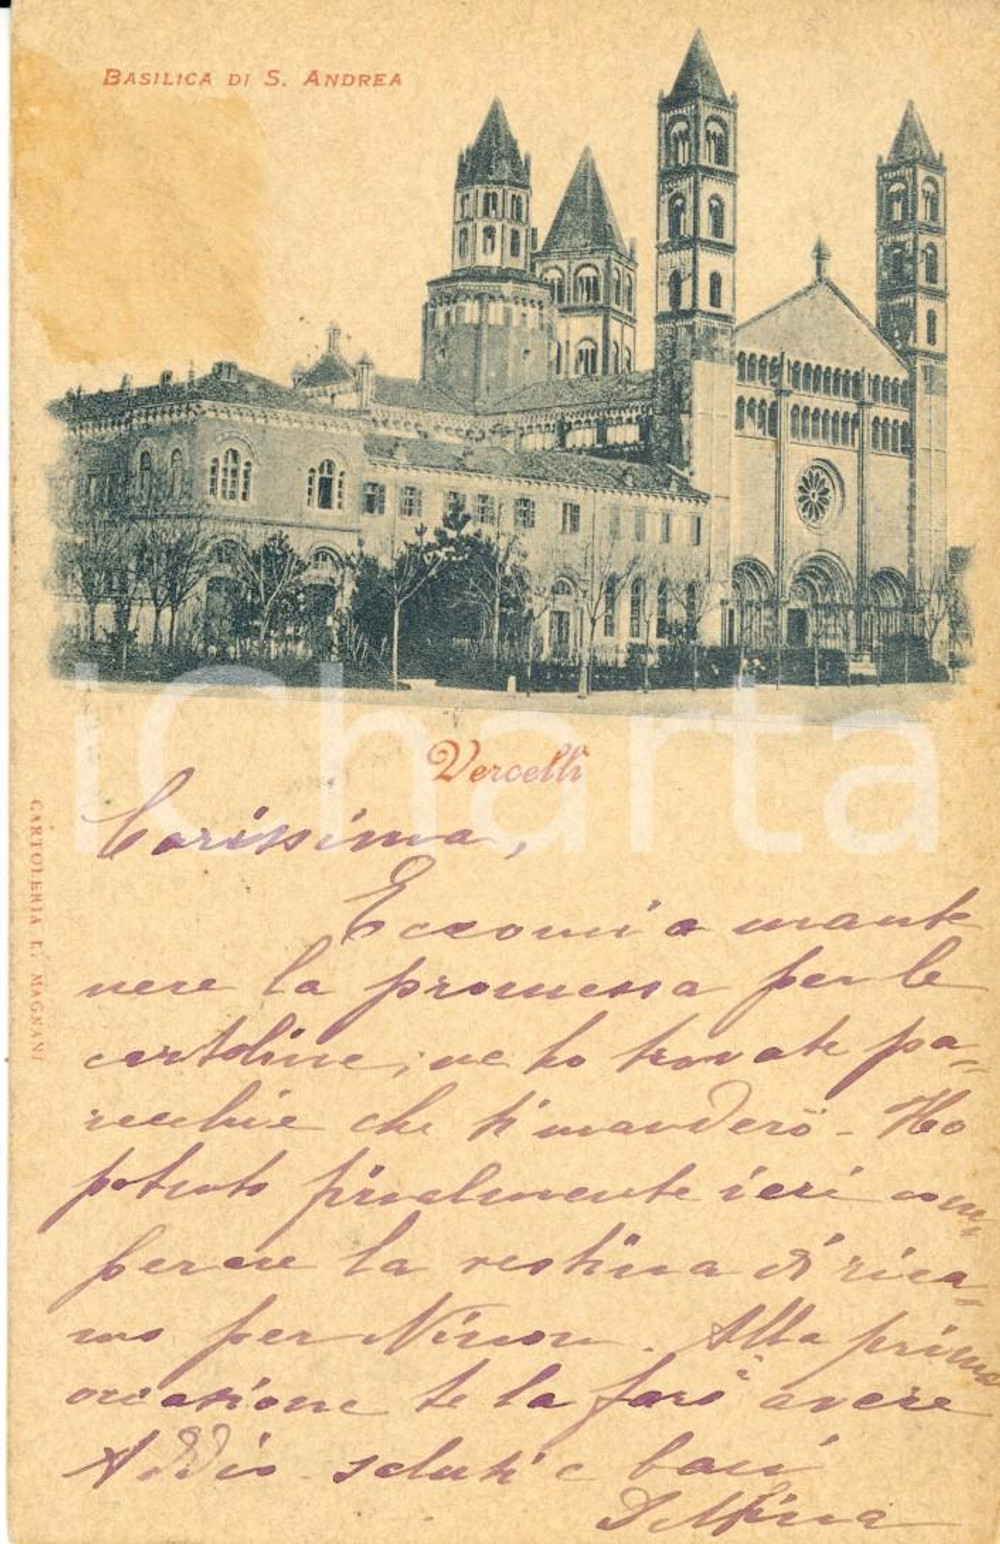 BASILICA DI S. ANDREA
Vercelli
iCharta
CARTOLERIA E. MAGNANI
Carissima,
Eccomi a mante
nere la promessa per le
cartoline; ne ho trovate pa-
recchie che ti manderò - Ho
potuto finalmente ieri com-
perare la vestina di rica-
mo per Ninon. Alla prima
occasione te la farò avere
Addio saluti e baci